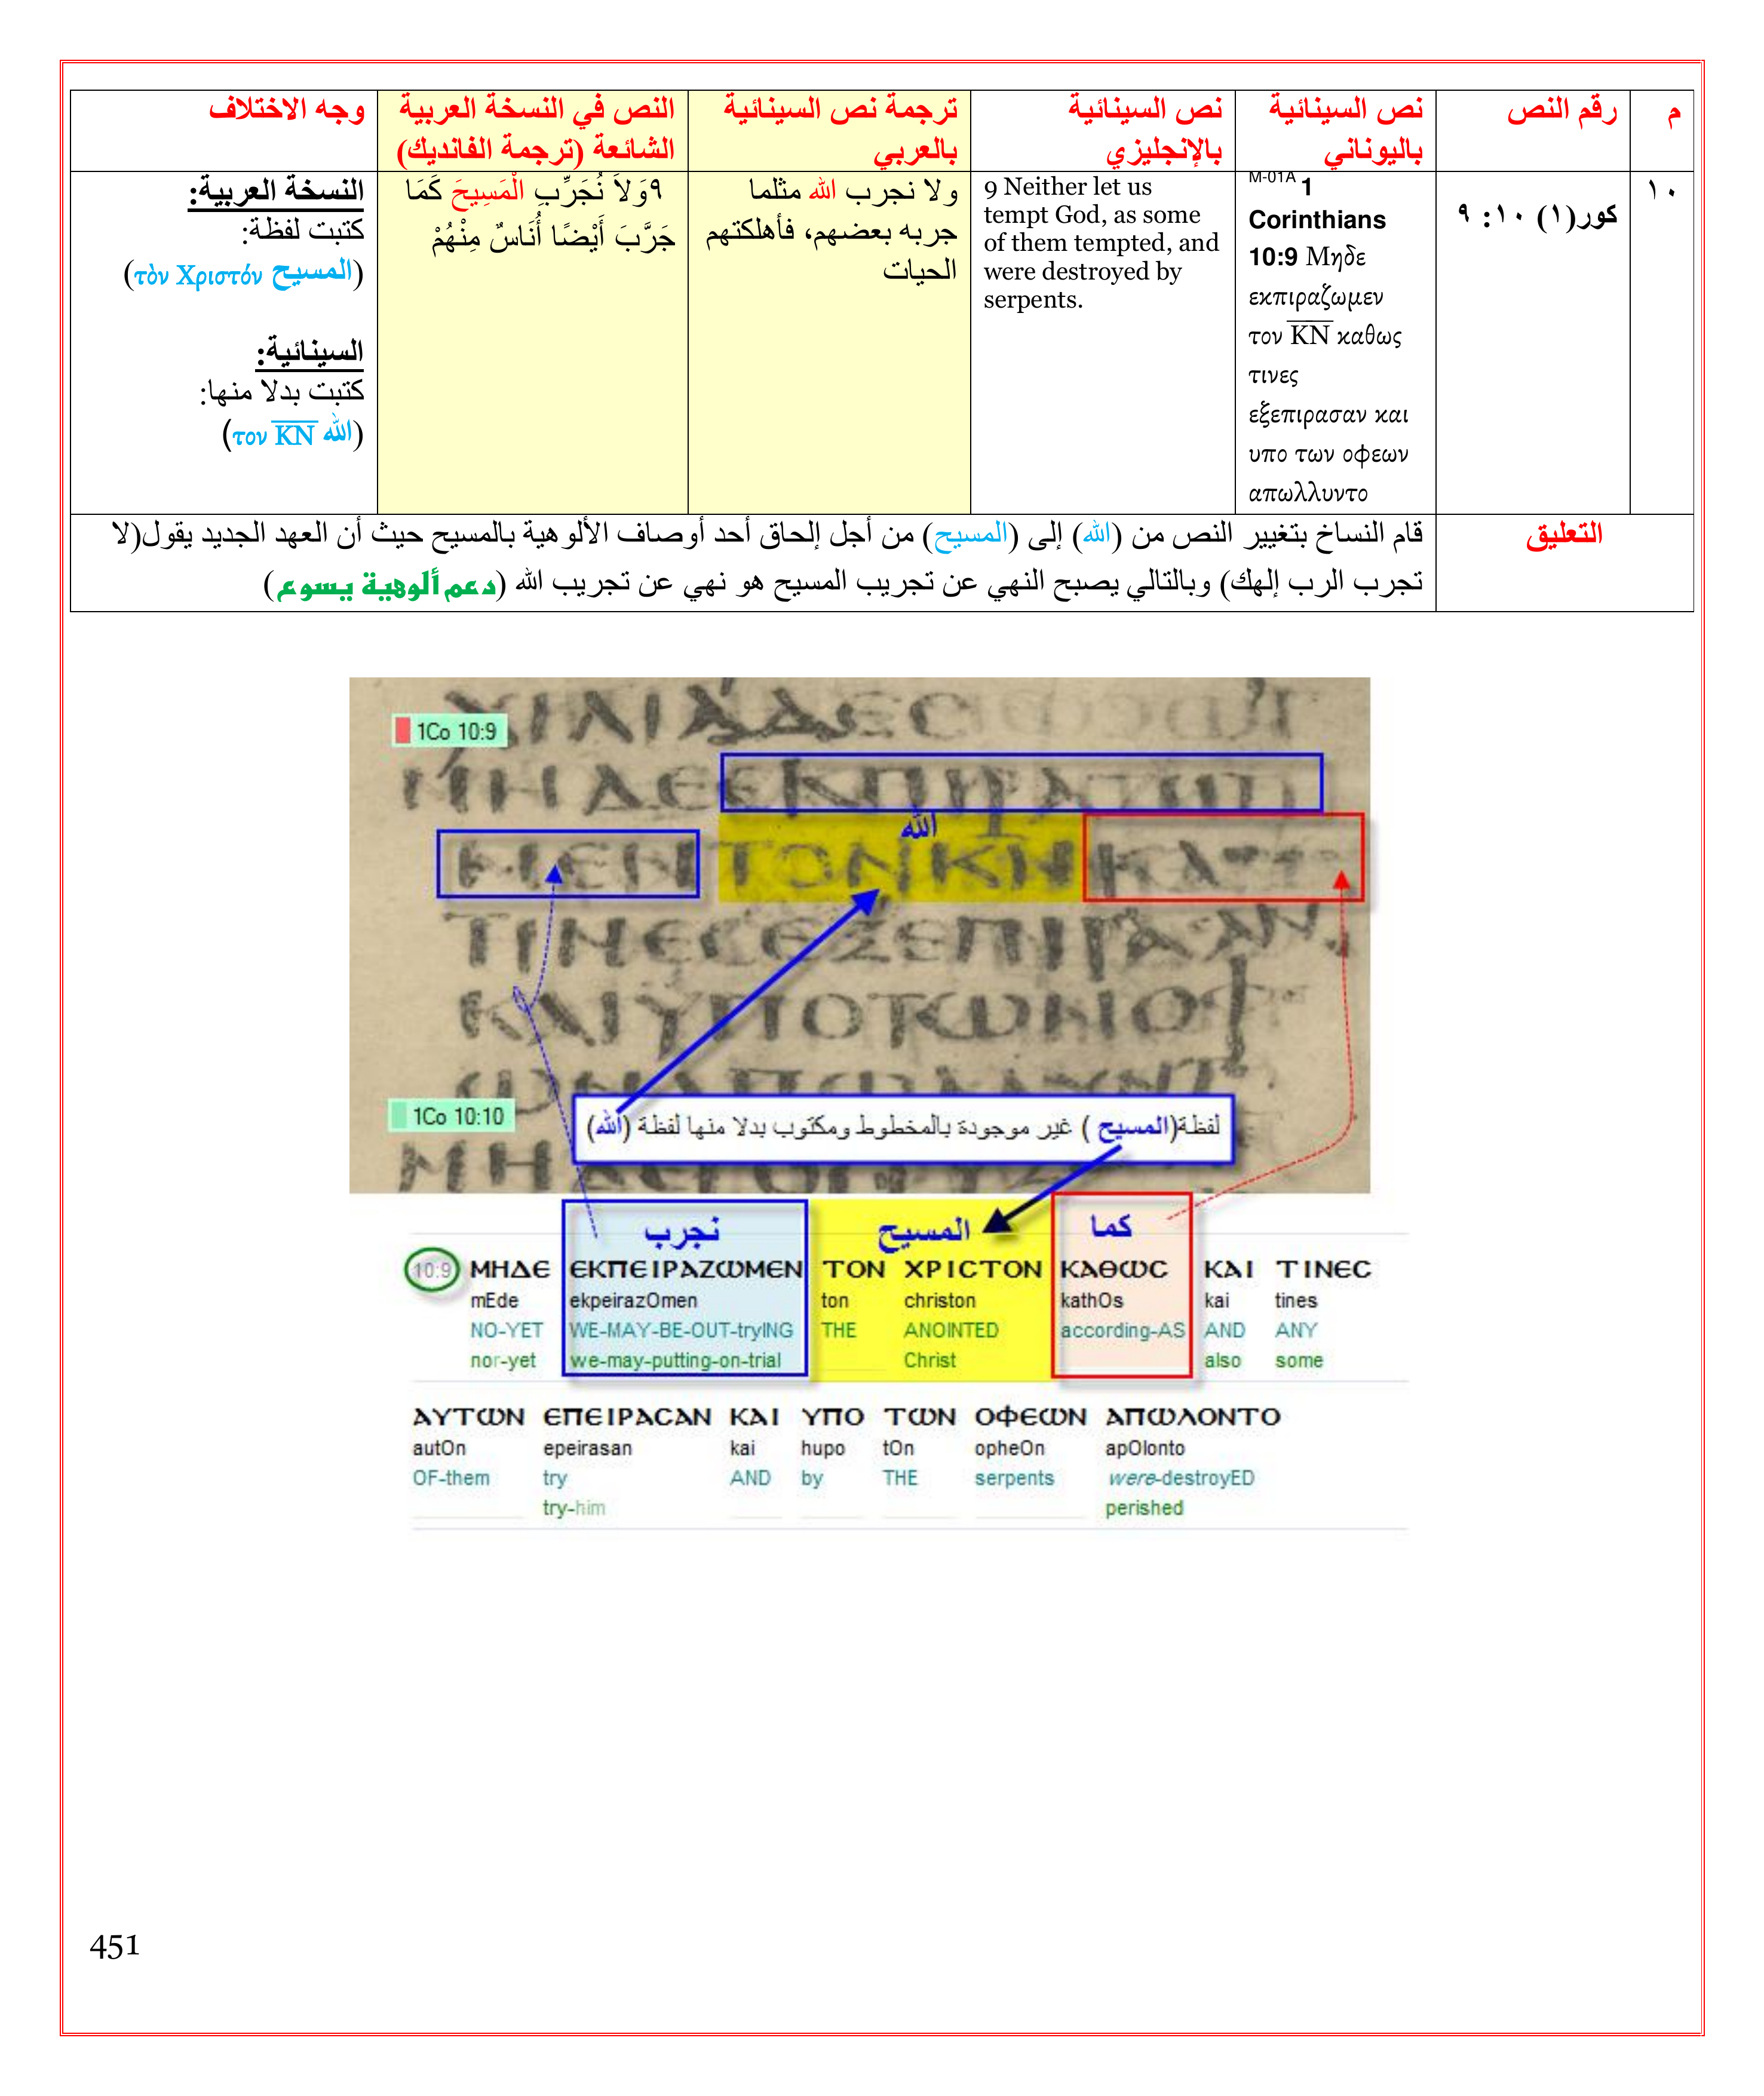 م
رقم النص
نص السينائية
باليوناني
نص السينائية
بالإنجليزي
ترجمة نص السينائية
بالعربي
النص في النسخة العربية
الشائعة (ترجمة الفانديك)
وجه الاختلاف
١٠
كور(١) ١٠: ٩
M-01A 1
Corinthians
10:9 Μηδε
εκπιραζωμεν
τον K̅N̅ καθως
τινες
εξεπιρασαν και
υπο των οφεων
απωλλυντο
9 Neither let us
tempt God, as some
of them tempted, and
were destroyed by
serpents.
ولا نجرب الله مثلما
جربه بعضهم، فأهلكتهم
الحيات
٩وَلاَ نُجَرِّبِ الْمَسِيحَ كَمَا
جَرَّبَ أَيْضًا أُنَاسٌ مِنْهُمْ
النسخة العربية:
كتبت لفظة:
(المسيح τὸν Χριστόν)
السينائية:
كتبت بدلا منها:
(الله τον K̅N̅)
التعليق
قام النساخ بتغيير النص من (الله) إلى (المسيح) من أجل إلحاق أحد أوصاف الألوهية بالمسيح حيث أن العهد الجديد يقول(لا
تجرب الرب إلهك) وبالتالي يصبح النهي عن تجريب المسيح هو نهي عن تجريب الله (دعم ألوهية يسوع)
ΧΙΛΙΑΔΕC
1Co 10:9
ΜΗΔΕΕΚΠΙΡΑΖΩ
الله
ΜΕΝΤΟΝΚΝΚΑ
ΤΙΝΕCΕΞΕΠΙΡΑCΑΝ
ΚΑΙΥΠΟΤΩΝΟΦ
1Co 10:10
لفظة(المسيح ) غير موجودة بالمخطوط ومكتوب بدلا منها لفظة (الله)
نجرب المسيح كما
10:9 ΜΗΔΕ ΕΚΠΕΙΡΑΖΩΜΕΝ ΤΟΝ ΧΡΙCΤΟΝ ΚΑΘΩC ΚΑΙ ΤΙΝΕC
mEde ekpeirazOmen ton christon kathOs kai tines
NO-YET WE-MAY-BE-OUT-tryING THE ANOINTED according-AS AND ANY
nor-yet we-may-putting-on-trial Christ also some
ΑΥΤΩΝ ΕΠΕΙΡΑCΑΝ ΚΑΙ ΥΠΟ ΤΩΝ ΟΦΕΩΝ ΑΠΩΛΟΝΤΟ
autOn epeirasan kai hupo tOn opheOn apOlonto
OF-them try AND by THE serpents were-destroyED
try-him perished
451